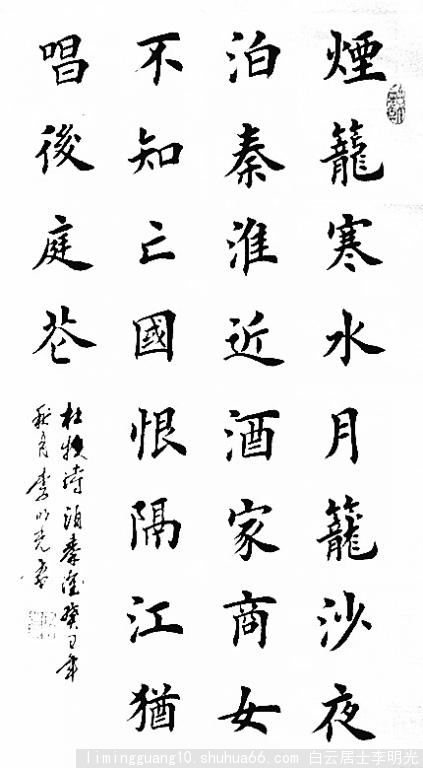 煙籠寒水月籠沙夜
泊秦淮近酒家商女
不知亡國恨隔江猶
唱後庭花
杜牧诗泊秦淮癸巳年
秋月李明光書
limingguang10.shuhua66.com 白云居士李明光